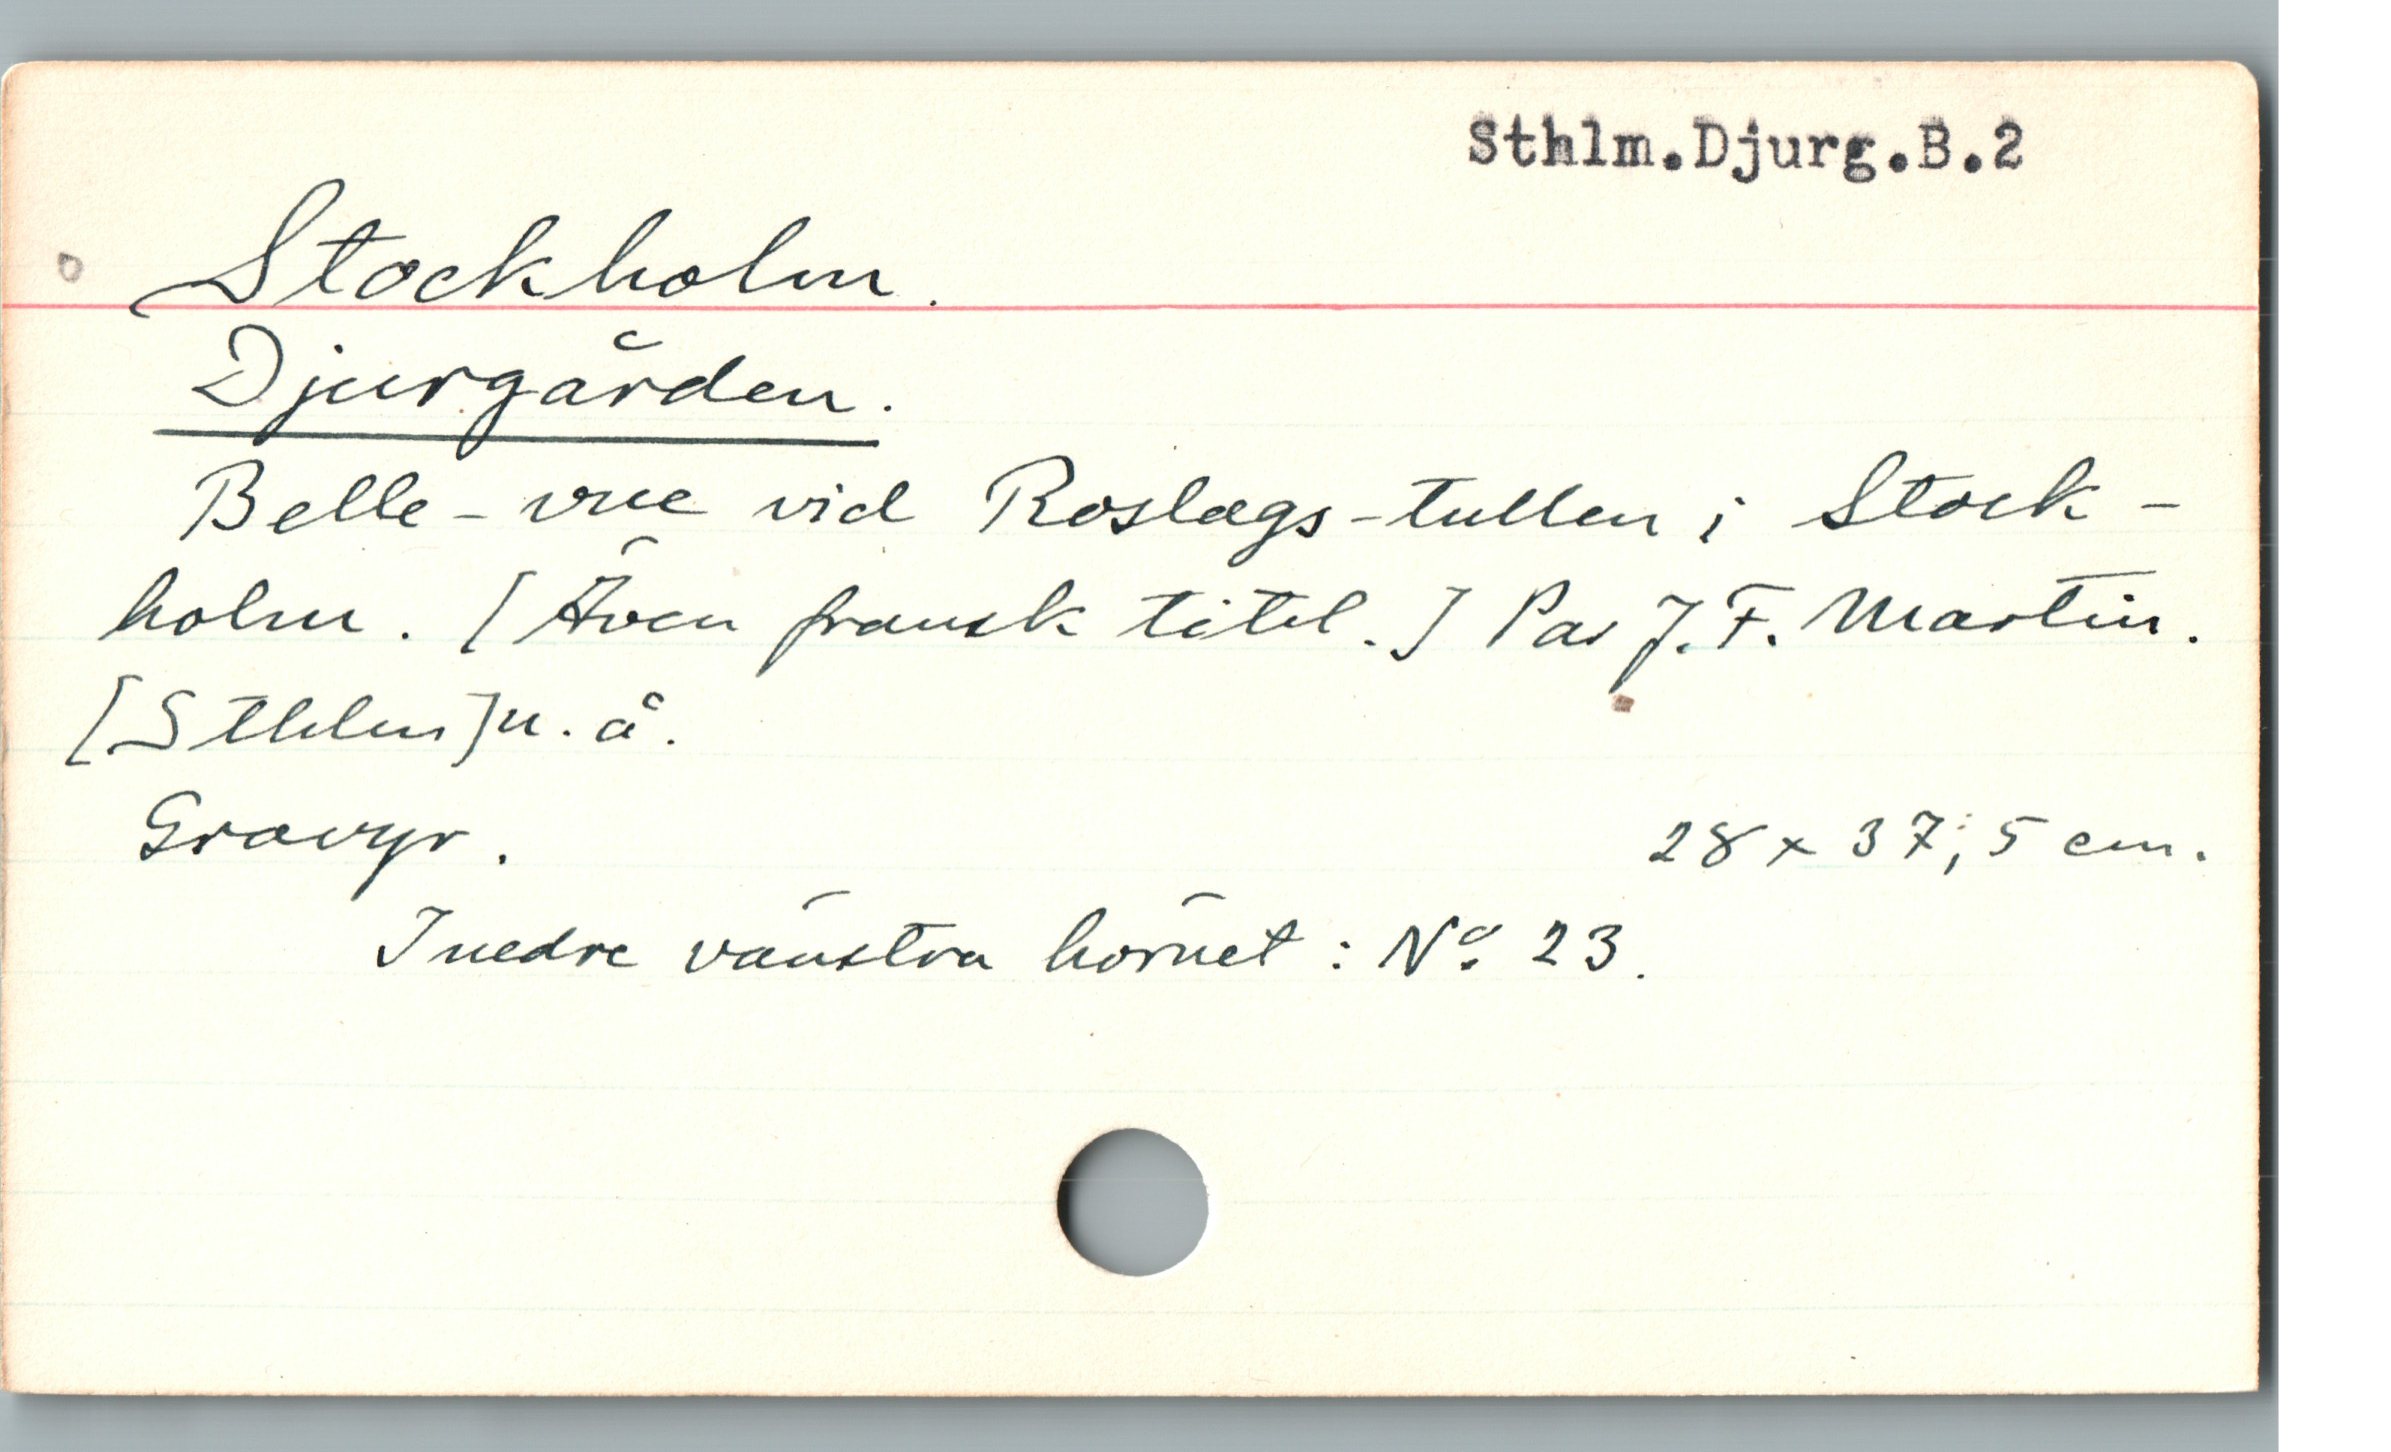 Sthlm.Djurg.B.2
Stockholm.
Djurgården.
Belle-vue vid Roslags-tullen i Stock-
holm. [Även fransk titel.] Par J. F. Martin.
[Sthlm] u. å.
Gravyr. 28 x 37,5 cm.
I nedre vänstra hörnet: Nº 23.